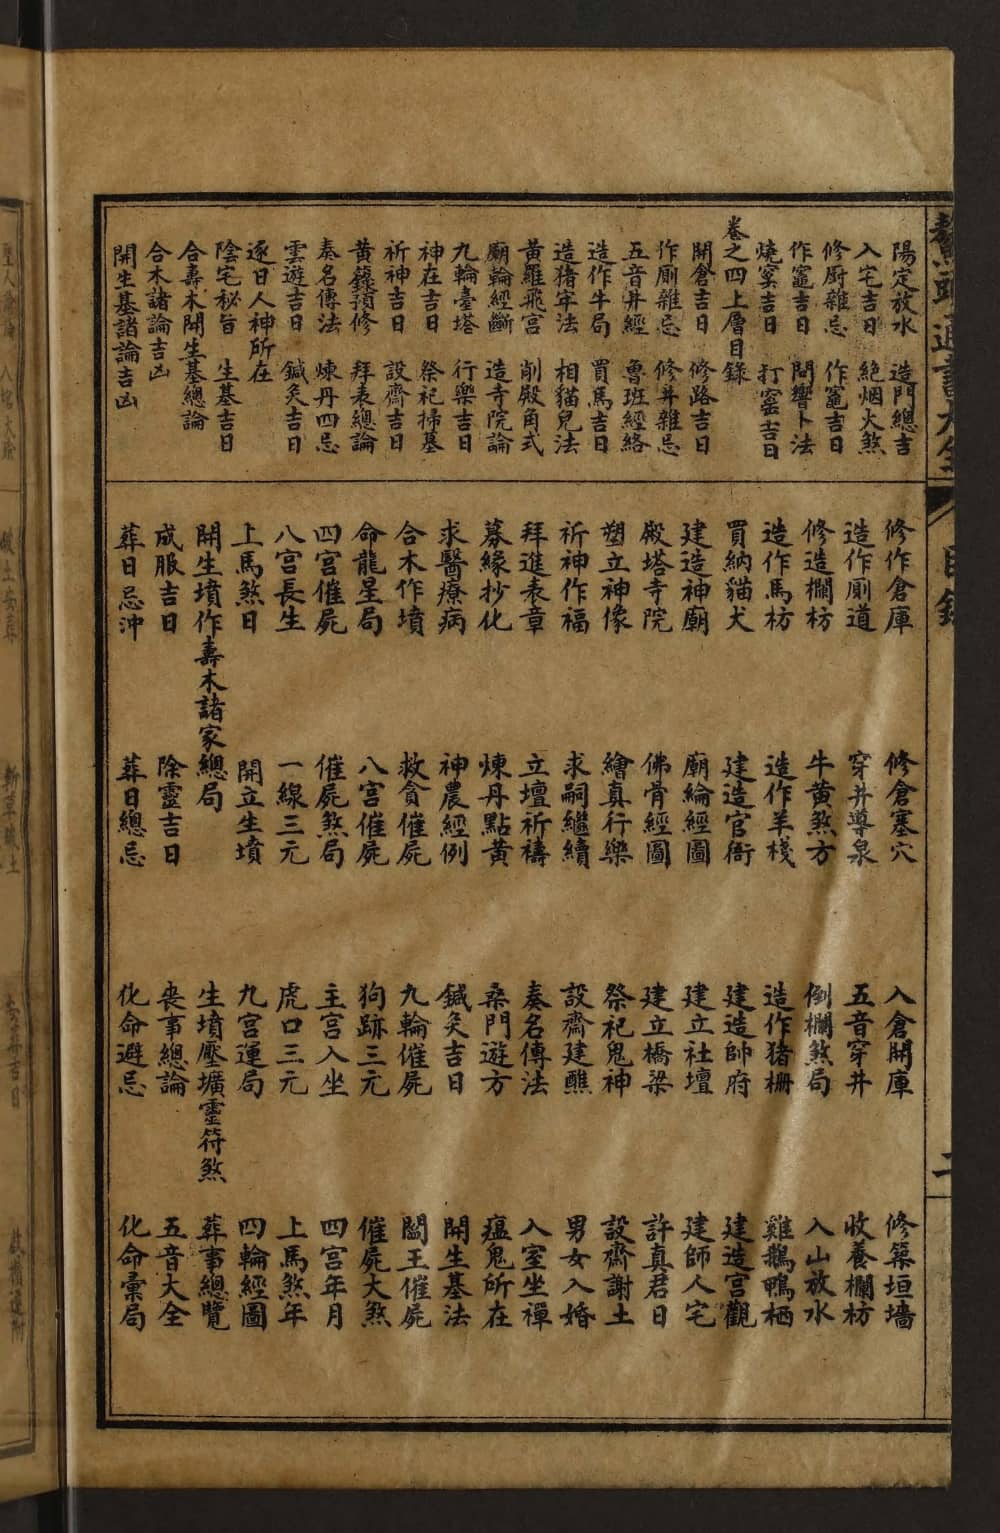 鰲頭通書大全
目錄
二
陽定放水　造門總吉
入宅吉日　絶烟火煞
修厨雜忌　作竈吉日
作竈吉日　問響卜法
燒窯吉日　打窰吉日
卷之四上層目錄
開倉吉日　修路吉日
作厠雜忌　修井雜忌
五音井經　魯班經絡
造作牛局　買馬吉日
造猪牢法　相猫兒法
黃羅飛宮　削殿角式
廟輪經斷　造寺院論
九輪臺塔　行樂吉日
神在吉日　祭祀掃墓
祈神吉日　設齋吉日
黃籙預修　拜表總論
奏名傳法　煉丹四忌
雲遊吉日　鍼灸吉日
逐日人神所在
陰宅秘旨　生基吉日
合壽木開生基總論
合木諸論吉凶
開生基諸論吉凶
修作倉庫　修倉塞穴　入倉開庫　修築垣墻
造作厠道　穿井導泉　五音穿井　收養欄枋
修造欄枋　牛黃煞方　倒欄煞局　入山放水
造作馬枋　造作羊棧　造作猪柵　雞鵝鴨栖
買納貓犬　建造官衙　建造帥府　建造宮觀
建造神廟　廟綸經圖　建立社壇　建師人宅
殿塔寺院　佛骨經圖　建立橋梁　許真君日
塑立神像　繪真行樂　祭祀鬼神　設齋謝土
祈神作福　求嗣繼續　設齋建醮　男女入婚
拜進表章　立壇祈禱　奏名傳法　入室坐禪
募緣抄化　煉丹點黃　桑門遊方　瘟鬼所在
求醫療病　神農經例　鍼灸吉日　開生基法
合木作墳　救貧催屍　九輪催屍　閻王催屍
命龍星局　八宮催屍　狗跡三元　催屍大煞
四宮催屍　催屍煞局　主宮入坐　四宮年月
八宮長生　一線三元　虎口三元　上馬煞年
上馬煞日　開立生墳　九宮運局　四輪經圖
開生墳作壽木諸家總局　生墳壓壙靈符煞　葬事總覽
成服吉日　除靈吉日　喪事總論　五音大全
葬日忌沖　葬日總忌　化命避忌　化命彙局